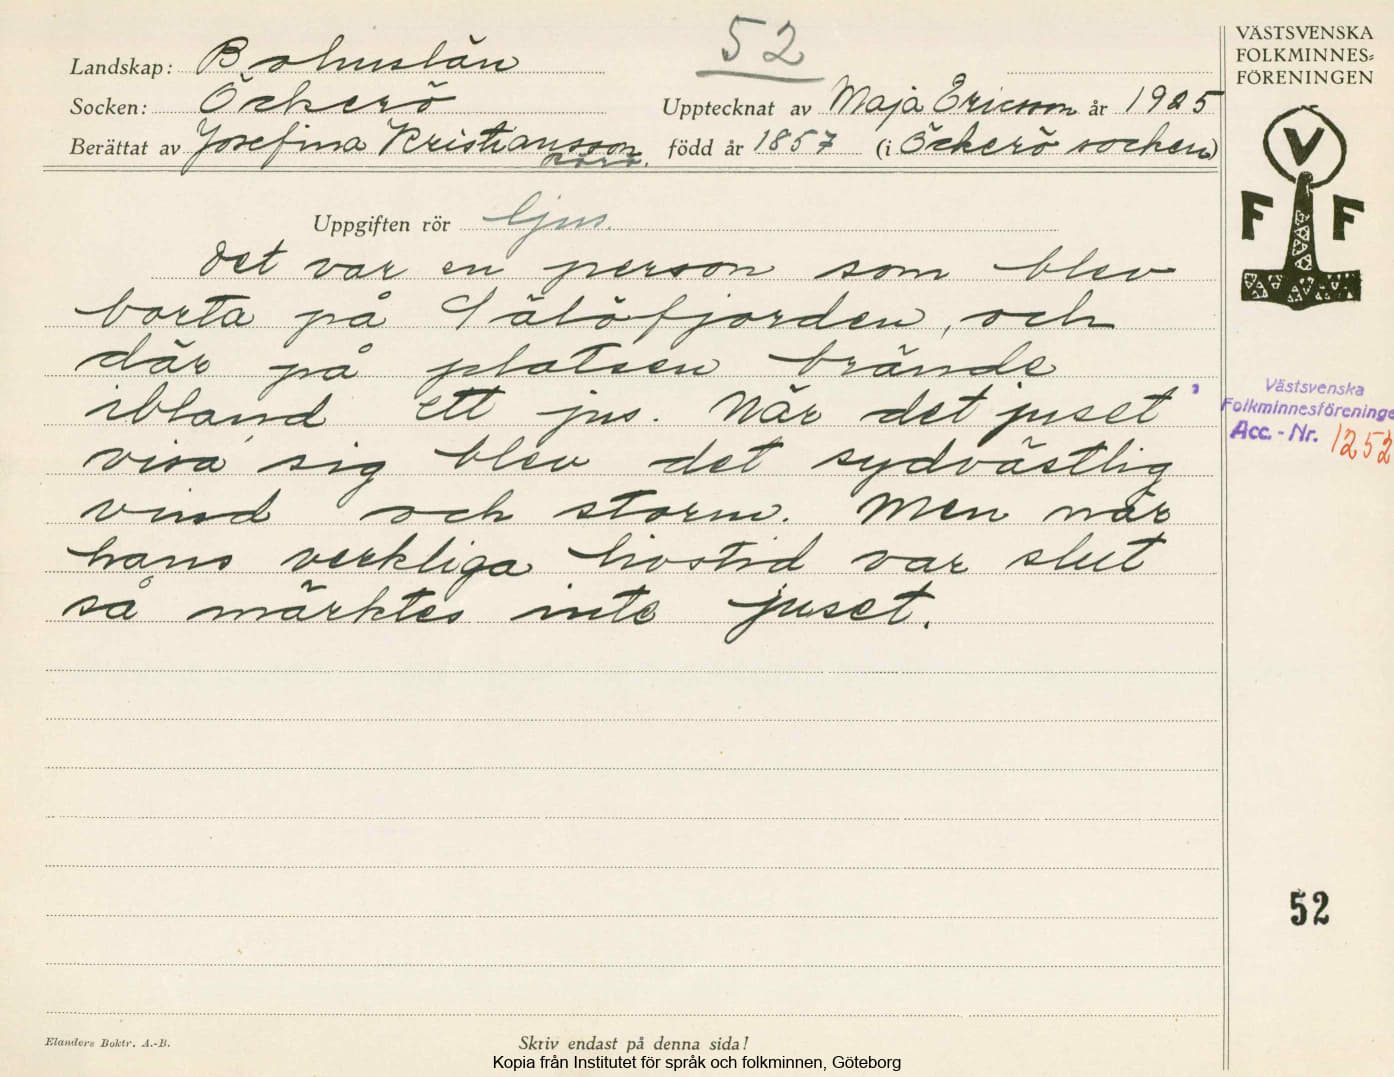 52
VÄSTSVENSKA
FOLKMINNES=
FÖRENINGEN
Landskap: Bohuslän
Socken: Öckerö
Upptecknat av Maja Ericsson år 1925
Berättat av Josefina Kristiansson
Rörö.
född år 1857 (i Öckerö socken)
V
F F
Uppgiften rör ljus.
Det var en person som blev
borta på Sälöfjorden, och
där på platsen brände
ibland ett jus. När det juset
visa sig blev det sydvästlig
vind och storm. Men när
hans verkliga livstid var slut
så märktes inte juset.
Västsvenska
Folkminnesföreninge
Acc. - Nr. 1252
52
Elanders Boktr. A.-B.
Skriv endast på denna sida!
Kopia från Institutet för språk och folkminnen, Göteborg